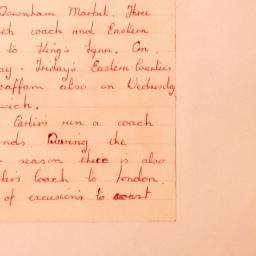 Downham Market. Three
coach and Eastern
to King's Lynn. On
Friday's Eastern Counties
also on Wednesday
wich.
Carter's run a coach
During the
season there is also
Coach to London.
of excusions to coast